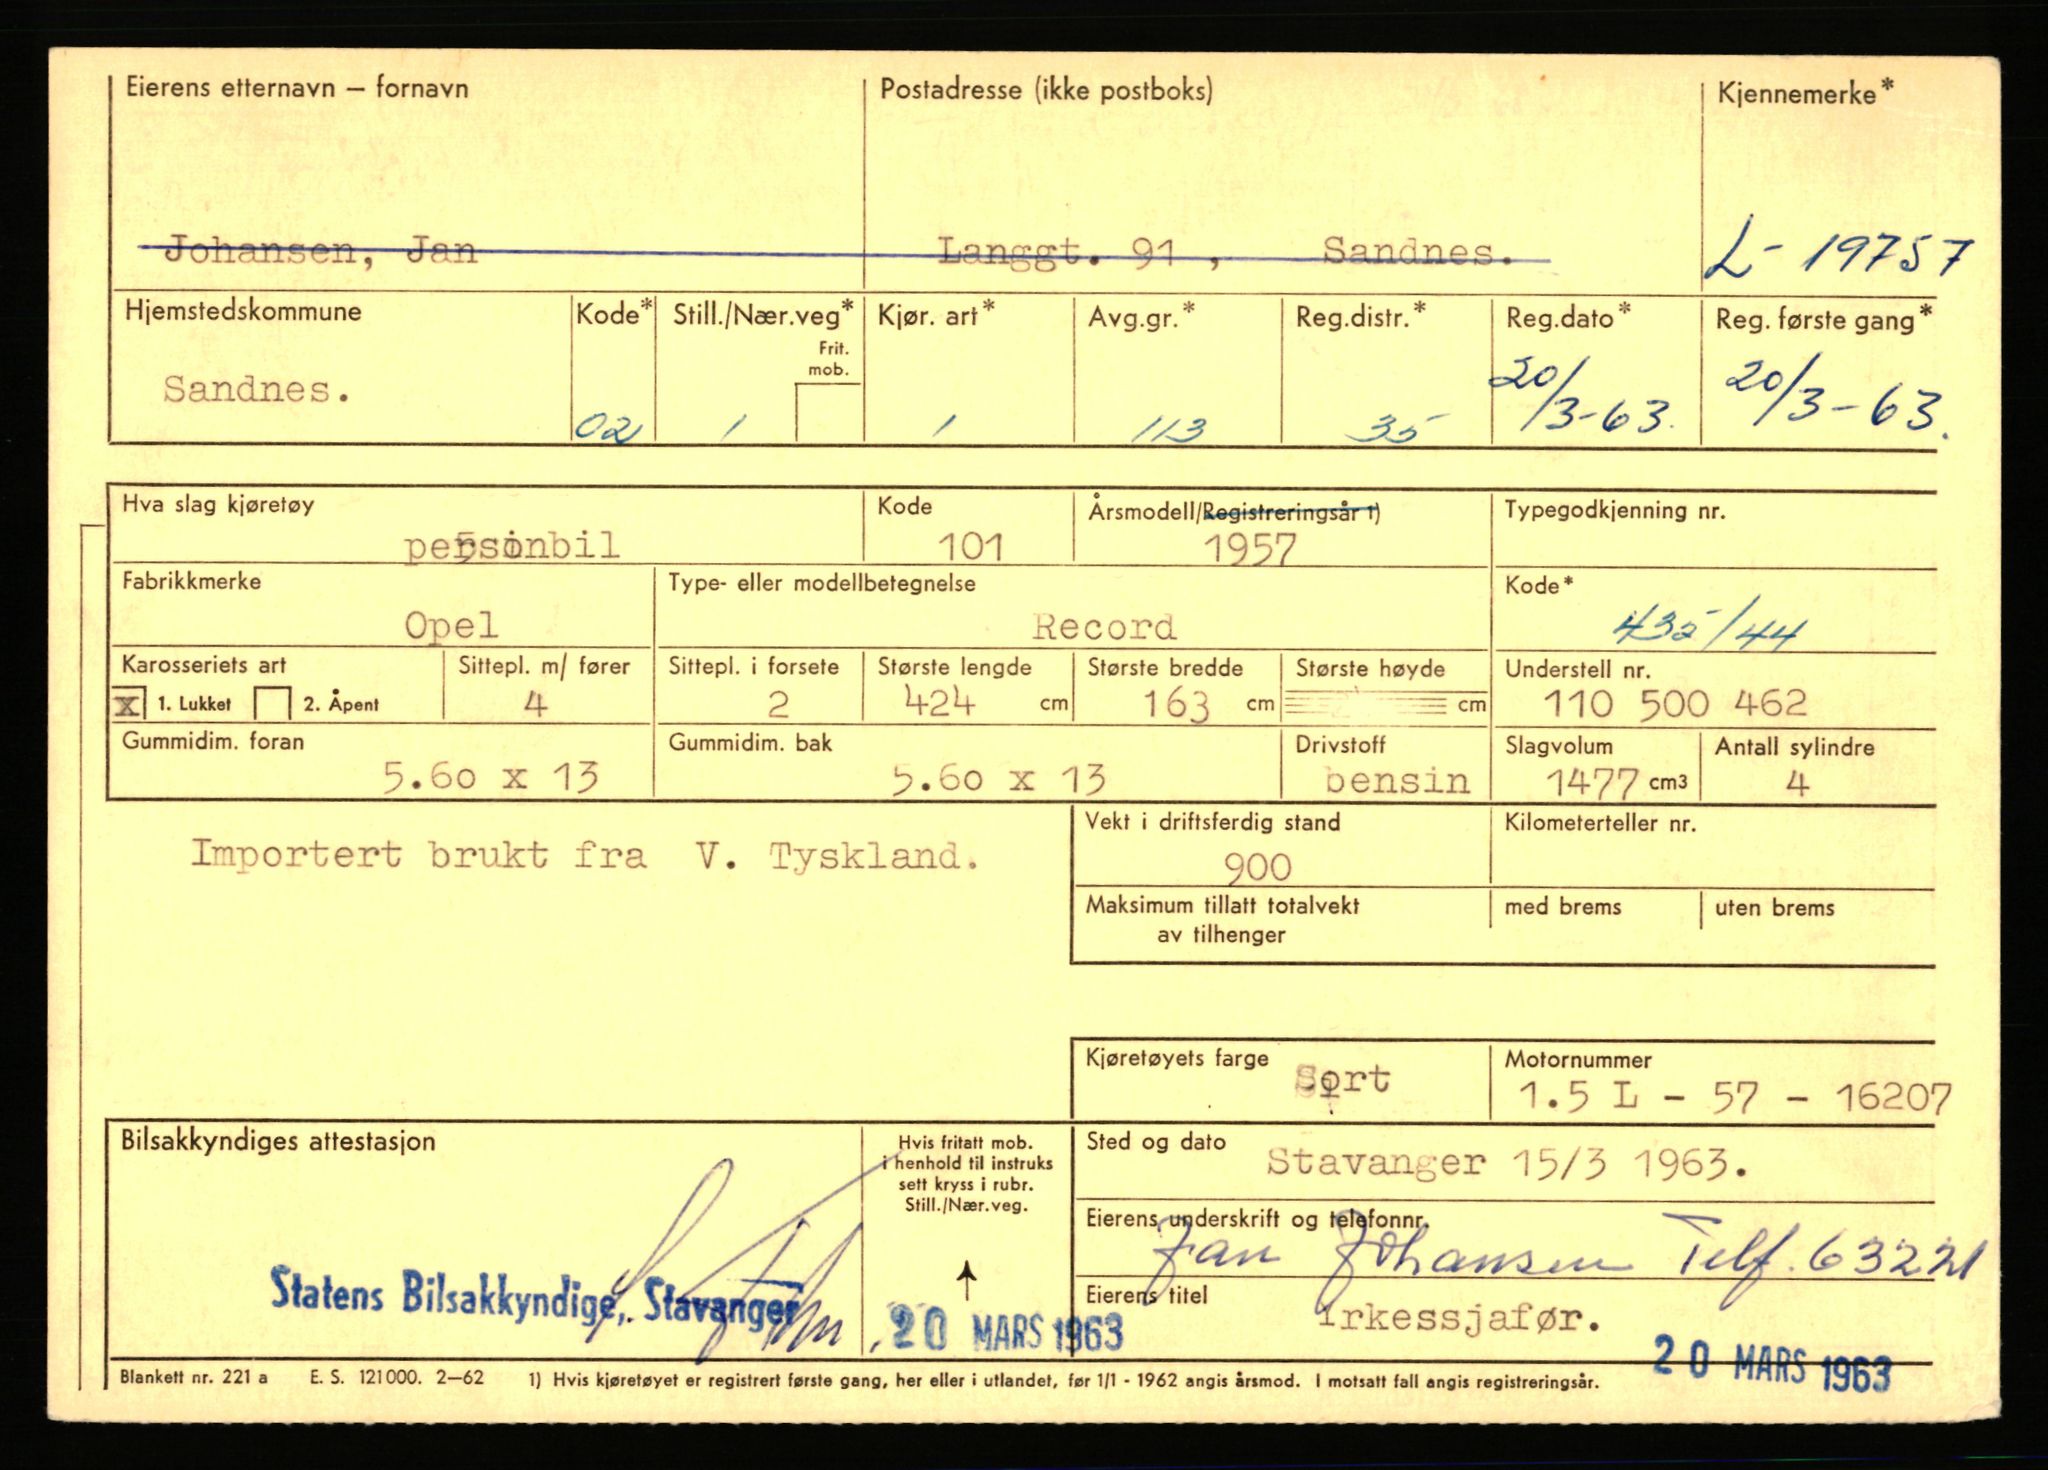 Eierens etternavn – fornavn
Postadresse (ikke postboks)
Kjennemerke*
Johansen, Jan
Langgt. 91, Sandnes.
L - 19757
Hjemstedskommune
Kode*
Still./Nær.veg*
Frit. mob.
Kjør. art*
Avg.gr.*
Reg.distr.*
Reg.dato*
Reg. første gang*
Sandnes.
02
1
1
113
35
20/3-63.
20/3-63.
Hva slag kjøretøy
Kode
Årsmodell/Registreringsår 1)
Typegodkjenning nr.
personbil
101
1957
Fabrikkmerke
Type- eller modellbetegnelse
Kode*
Opel
Record
435/44
Karosseriets art
Sittepl. m/ fører
Sittepl. i forsete
Største lengde
Største bredde
Største høyde
Understell nr.
x 1. Lukket 2. Åpent
4
2
424 cm
163 cm
cm
110 500 462
Gummidim. foran
Gummidim. bak
Drivstoff
Slagvolum
Antall sylindre
5.60 x 13
5.60 x 13
bensin
1477 cm3
4
Importert brukt fra V. Tyskland.
Vekt i driftsferdig stand
Kilometerteller nr.
900
Maksimum tillatt totalvekt
av tilhenger
med brems
uten brems
Kjøretøyets farge
Sort
Motornummer
1.5 L - 57 - 16207
Bilsakkyndiges attestasjon
Hvis fritatt mob.
i henhold til instruks
sett kryss i rubr.
Still./Nær.veg.
Sted og dato
Stavanger 15/3 1963.
Eierens underskrift og telefonnr.
Jan Johansen Telf. 63221
Statens Bilsakkyndige, Stavanger
20 MARS 1963
Eierens titel
irkessjafør.
20 MARS 1963
Blankett nr. 221 a E. S. 121000. 2–62 1) Hvis kjøretøyet er registrert første gang, her eller i utlandet, før 1/1 - 1962 angis årsmod. I motsatt fall angis registreringsår.